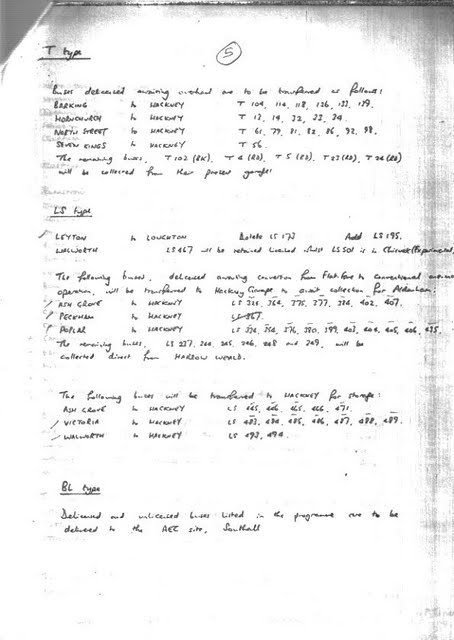 T type
5
buses delicensed awaiting overhaul are to be transferred as follows:
BARKING to HACKNEY T 104, 114, 118, 126, 133, 139.
HORNCHURCH to HACKNEY T 13, 14, 32, 33, 34.
NORTH STREET to HACKNEY T 61, 79, 81, 82, 86, 92, 98.
SEVEN KINGS to HACKNEY T 56.
The remaining buses, T 102 (BK), T 4 (RD), T 5 (RD), T 23 (RD), T 24 (RD)
will be collected from their present garages.
LS type
LEYTON to LOUGHTON Delete LS 173 Add LS 195.
WALWORTH LS 467 will be retained licensed whilst LS 501 is in Chiswick (Experimental)
The following buses, delicensed awaiting conversion from Flat Fare to conventional
operation, will be transferred to Hackney Garage to await collection for Aldenham:
ASH GROVE to HACKNEY LS 364, 375, 377, 402, 407.
PECKHAM to HACKNEY LS 367.
POPLAR to HACKNEY LS 376, 380, 399, 403, 404, 405, 406, 435.
The remaining buses, LS 237, 244, 245, 246, 248 and 249, will be
collected direct from HARROW WEALD.
The following buses will be transferred to HACKNEY for storage:
ASH GROVE to HACKNEY LS 445, 446, 465, 466, 471.
VICTORIA to HACKNEY LS 483, 484, 485, 486, 487, 488, 489.
WALWORTH to HACKNEY LS 493, 494.
BL type
Delicensed and unlicensed buses listed in the programme are to be
delivered to the AEC site, Southall